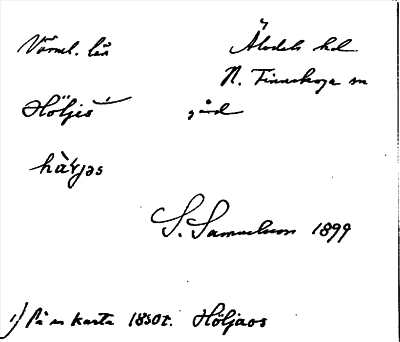 Värml. län Älvdals hd
N. Finnskoga sn
Höljes ¹⁾ gård
hàʏjəs
S. Samuelsson 1899
¹⁾ På en karta 1850t. Höljaos